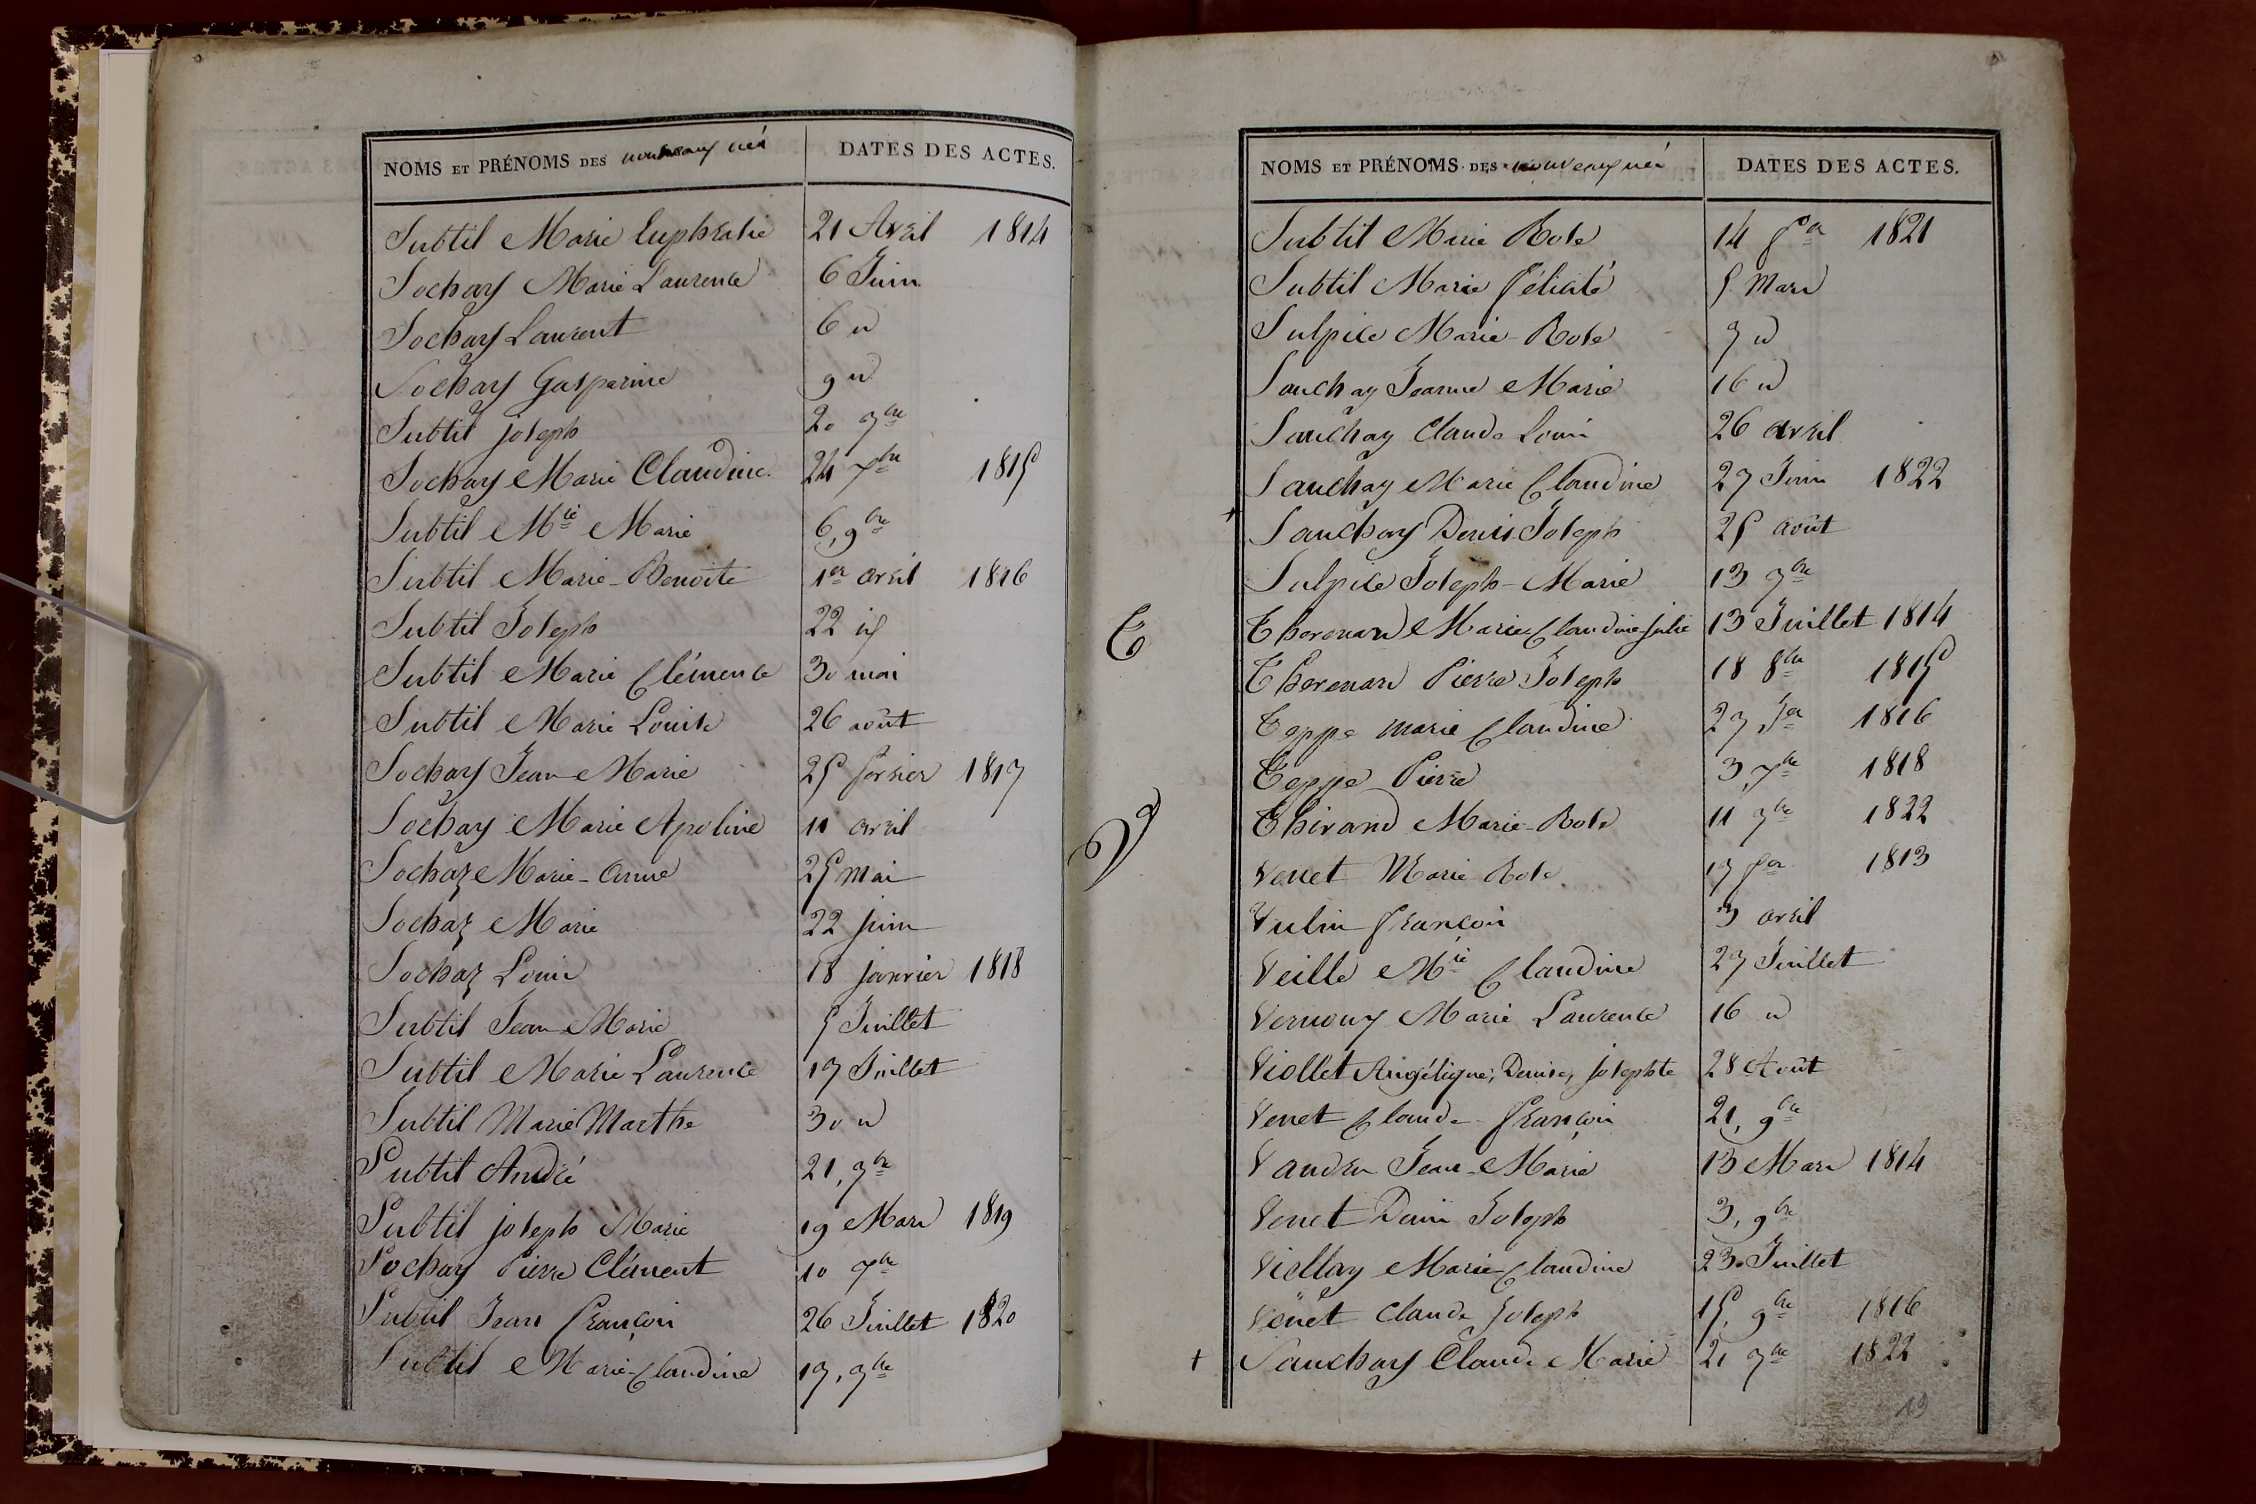 NOMS ET PRÉNOMS DES nouveaux nés DATES DES ACTES.
Subtil Marie Euphrasie 21 Avril 1814
Sochay Marie Laurence 6 Juin
Sochay Laurent 6 id
Sochay Gasparine 9 id
Subtil joseph 20 7bre
Sochay Marie Claudine 24 7bre 1815
Subtil Mie Marie 6, 9bre
Subtil Marie-Benoite 1er avril 1816
Subtil Joseph 22 id
Subtil Marie Clémence 30 mai
Subtil Marie Louise 26 août
Sochay Jean Marie 25 fevrier 1817
Sochay Marie Apoline 11 avril
Sochaz Marie-Anne 25 Mai
Sochaz Marie 22 juin
Sochaz Louis 18 janvier 1818
Subtil Jean Marie 5 Juillet
Subtil Marie Laurence 17 Juillet
Subtil Marie Marthe 30 id
Subtil André 21, 7bre
Subtil joseph Marie 19 Mars 1819
Sochay Pierre Clément 10 7bre
Subtil Jean François 26 Juillet 1820
Subtil Marie-Claudine 17, 7bre
NOMS ET PRÉNOMS DES nouveaux nés DATES DES ACTES.
Subtil Marie Rose 14 fer 1821
Subtil Marie Félicité 5 Mars
Sulpice Marie-Rose 7 id
Sauchay Jeanne Marie 16 id
Sauchay Claude Louis 26 avril
Sauchay Marie Claudine 27 Juin 1822
+ Sauchay Denis Joseph 25 août
Sulpice Joseph-Marie 13 7bre
T Thevenard Marie Claudine Julie 13 Juillet 1814
Thevenard Pierre Joseph 18 8bre 1815
Teppe marie Claudine 27 Jer 1816
Teppe Pierre 3, 7bre 1818
Thivand Marie-Rose 11 7bre 1822
V Venet Marie Rose 17 fer 1813
Vulin François 3 avril
Veille Mie Claudine 27 Juillet
Vernouy Marie Laurence 16 id
Viollet Angélique, Denise, josephte 28 Août
Venet Claude François 21, 9bre
Vaudru Jean-Marie 13 Mars 1814
Venet Denis Joseph 3, 9bre
Viollay Marie Claudine 23 Juillet
Venet Claude Joseph 15, 9bre 1816
+ Sauchay Claude Marie 21 7bre 1822
19